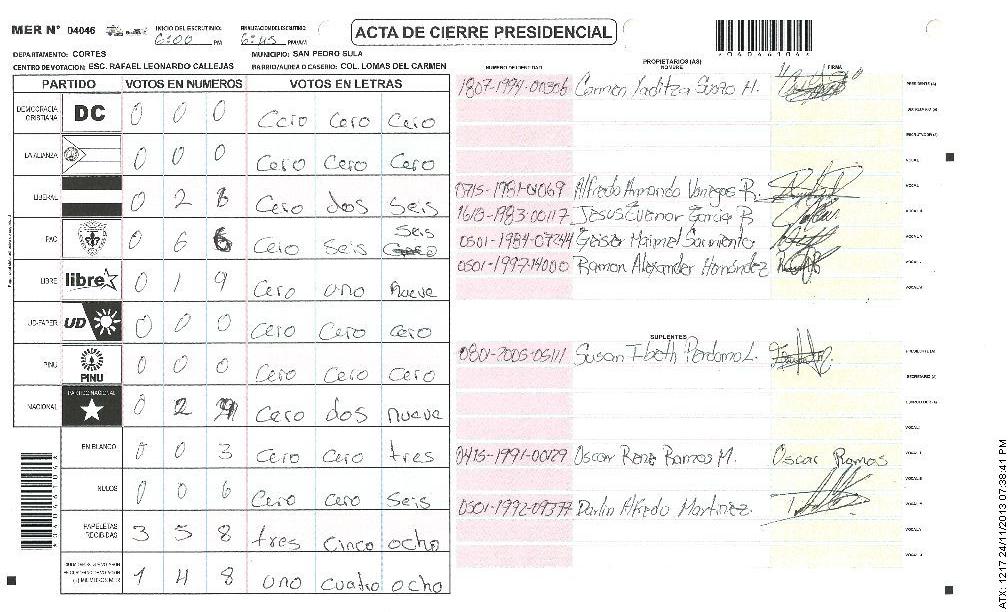 MER Nº 04046 INICIO DEL ESCRUTINIO: 6:00 PM FINALIZACION DEL ESCRUTINIO: 6:45 PM/AM
ACTA DE CIERRE PRESIDENCIAL
DEPARTAMENTO: CORTES MUNICIPIO: SAN PEDRO SULA
CENTRO DE VOTACION: ESC. RAFAEL LEONARDO CALLEJAS BARRIO/ALDEA O CASERIO: COL. LOMAS DEL CARMEN
PARTIDO VOTOS EN NUMEROS VOTOS EN LETRAS
DEMOCRACIA CRISTIANA DC 0 0 0 Cero Cero Cero
LA ALIANZA 0 0 0 Cero Cero Cero
LIBERAL 0 2 6 Cero dos Seis
PAC 0 6 6 Cero Seis Seis
LIBRE libre 0 1 9 Cero uno nueve
UD-FAPER UD 0 0 0 Cero Cero Cero
PINU PINU 0 0 0 Cero Cero Cero
NACIONAL PARTIDO NACIONAL 0 2 9 Cero dos nueve
EN BLANCO 0 0 3 Cero Cero tres
NULOS 0 0 6 Cero Cero Seis
PAPELETAS RECIBIDAS 3 5 8 tres Cinco ocho
1 4 8 uno cuatro ocho
NUMERO DE IDENTIDAD PROPIETARIOS (AS) NOMBRE FIRMA
1807-1994-00306 Carmen Yaditza H. PRESIDENTE (A)
SECRETARIO (A)
ESCRUTADOR (A)
VOCAL I
0715-1981-01069 Alfredo Armando Vanegas R.
1615-1983-00117 Jesus Garcia B
0501-1984-07244 Geisar Maimel Sarmiento
0501-1997-14000 Ramon Alexander Hernández
SUPLENTES
0801-2005-05111 Susan Ibeth Perdomo L. PRESIDENTE (A)
SECRETARIO (A)
ESCRUTADOR (A)
0415-1991-00129 Oscar Rene Ramos M. Oscar Ramos
0501-1992-09377 Darlin Alfredo Martinez
ATX: 1217 24/11/2013 07:38:41 PM